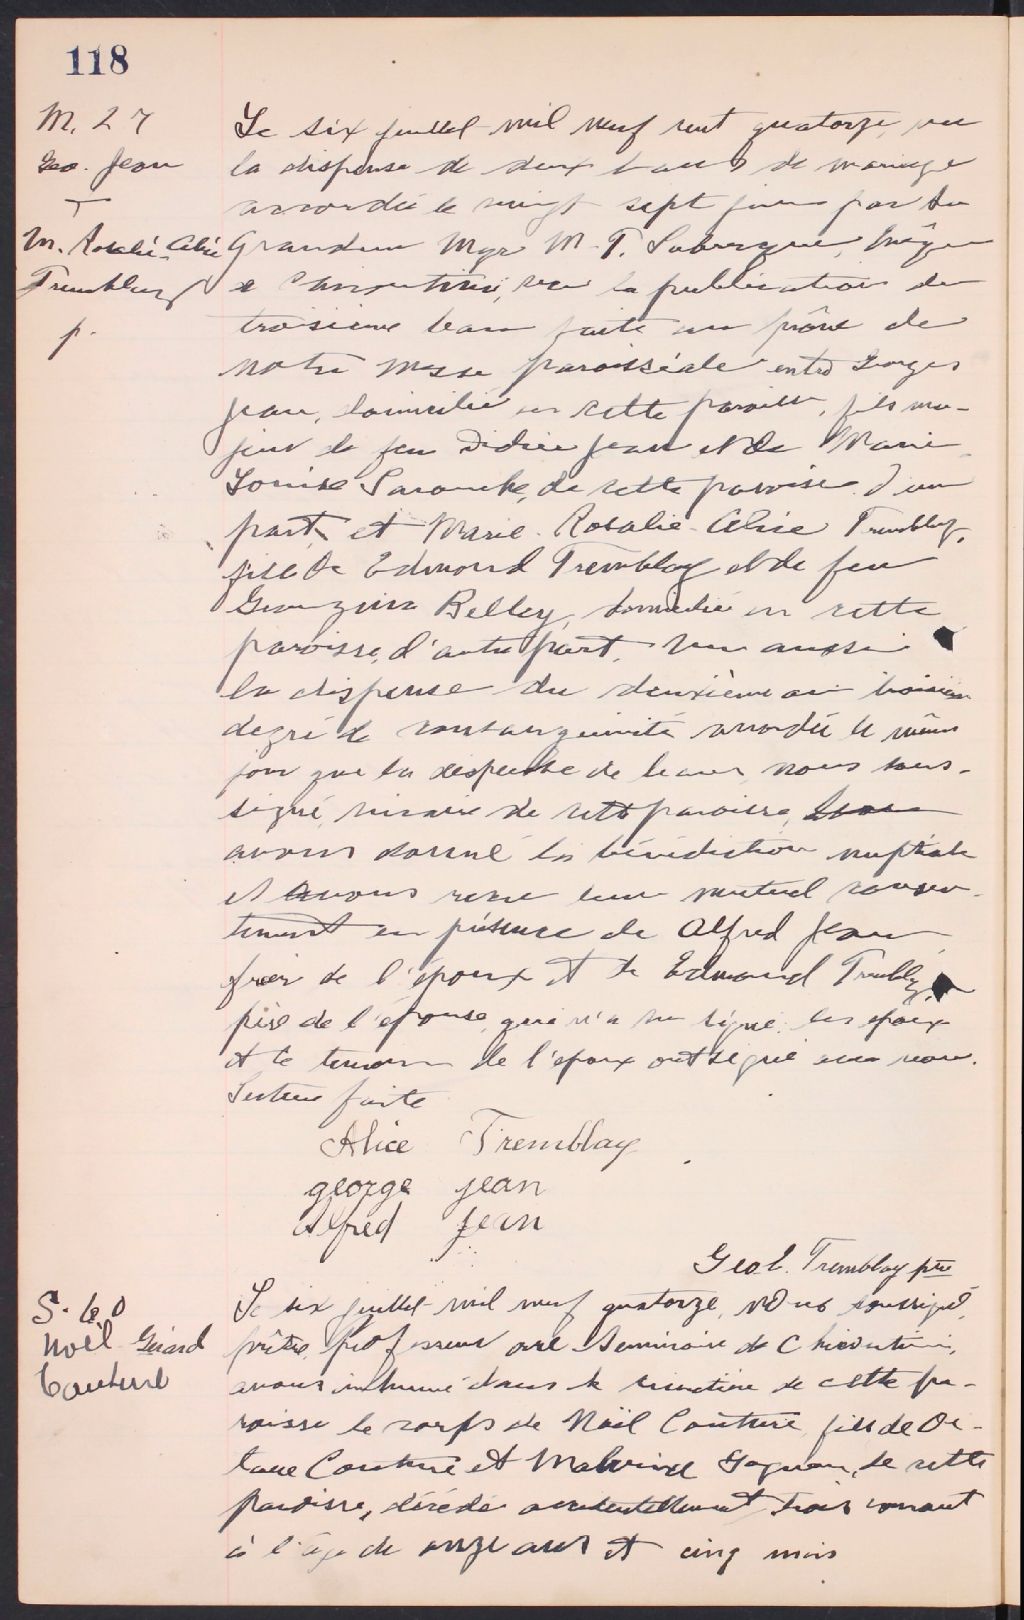 118
M. 27
Geo. Jean
+
M. Rosalie-Alice
Tremblay
p.
Le six juillet mil neuf cent quatorze, vu
la dispense de deux bans de mariage
accordée le vingt sept juin par Sa
Grandeur Mgr M. T. Labrecque, évêque
de Chicoutimi, vu la publication du
troisième ban faite au prône de
notre messe paroissiale entre Georges
Jean, domicilié en cette paroisse, fils ma-
jeur de feu Didier Jean et de Marie
Louise Larouche, de cette paroisse d'une
part, et Marie-Rosalie-Alice Tremblay,
fille de Edmond Tremblay et de feu
Georgina Belley, domiciliée en cette
paroisse, d'autre part, vu aussi
la dispense du deuxième au troisième
degré de consanguinité accordée le même
jour que la dispense de bans, nous sous-
signé, vicaire de cette paroisse,
avons donné la bénédiction nuptiale
et avons reçu leur mutuel consen-
tement en présence de Alfred Jean
frère de l'époux et de Edmond Tremblay
père de l'épouse, qui n'a su signé. les époux
et le témoin de l'époux ont signé avec nous.
Lecture faite
Alice Tremblay
george jean
Alfred Jean
Geo. E. Tremblay ptre
S. 60
Noël Gérard
Couture
Le six juillet mil neuf quatorze, nous soussigné,
prêtre, professeur au Séminaire de Chicoutimi,
avons inhumé dans le cimetière de cette pa-
roisse le corps de Noël Couture, fils de Oc-
tave Couture et Malvina Gagnon, de cette
paroisse, décédé accidentellement trois courant
à l'âge de onze ans et cinq mois